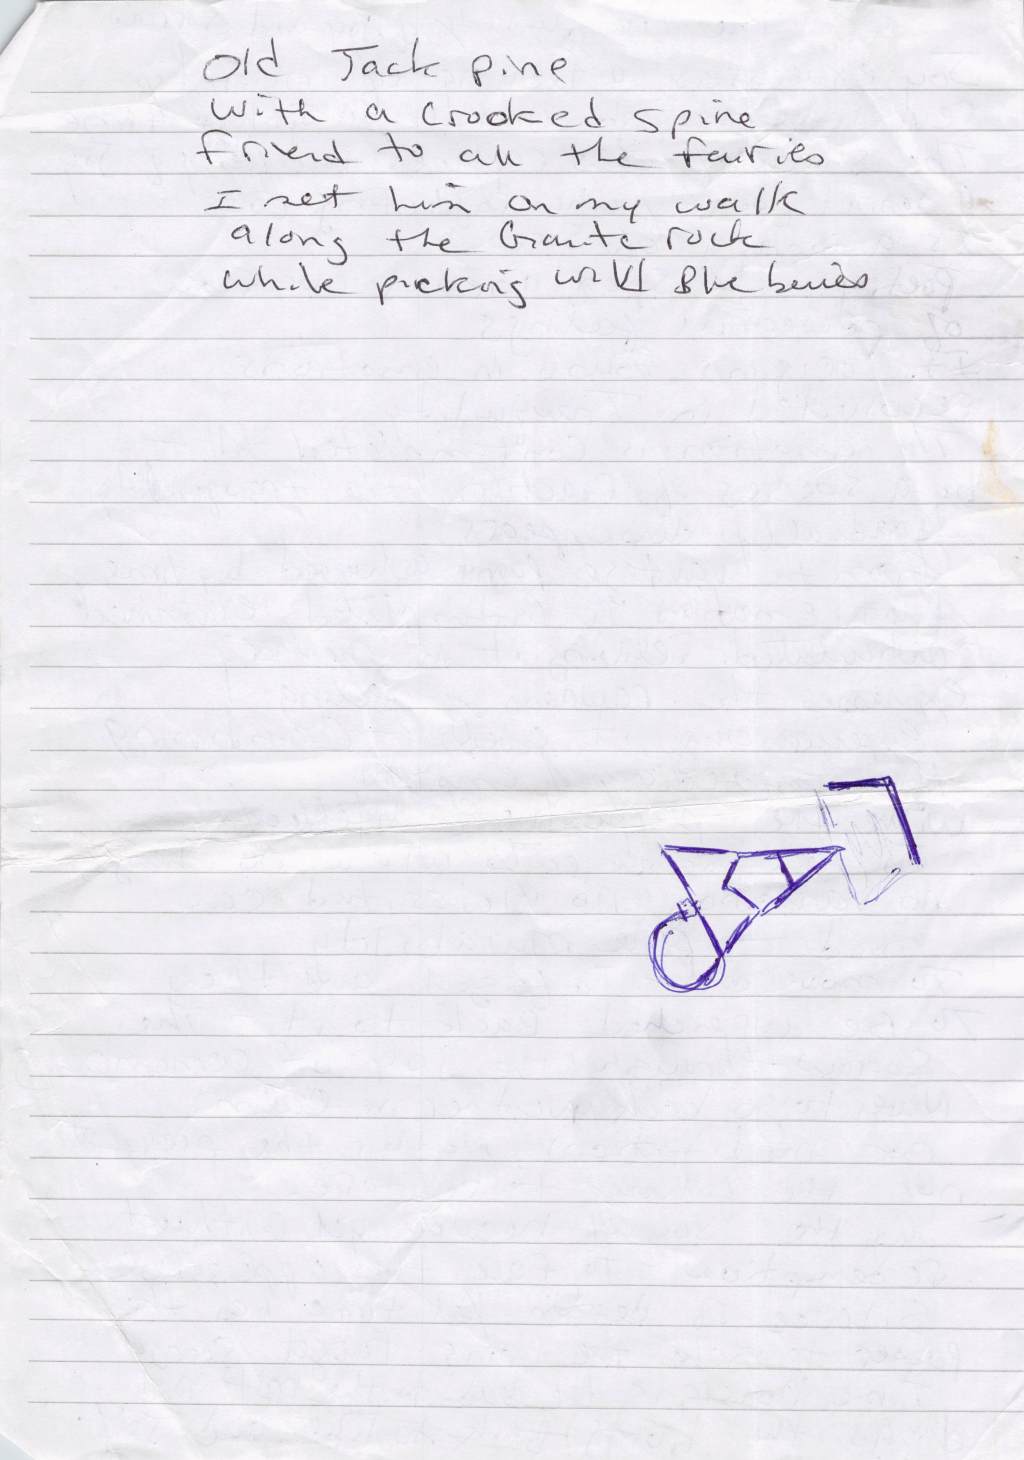 Old Jack pine
with a crooked spine
friend to all the fairies
I met him on my walk
along the Granite rock
while picking wild Blue berries